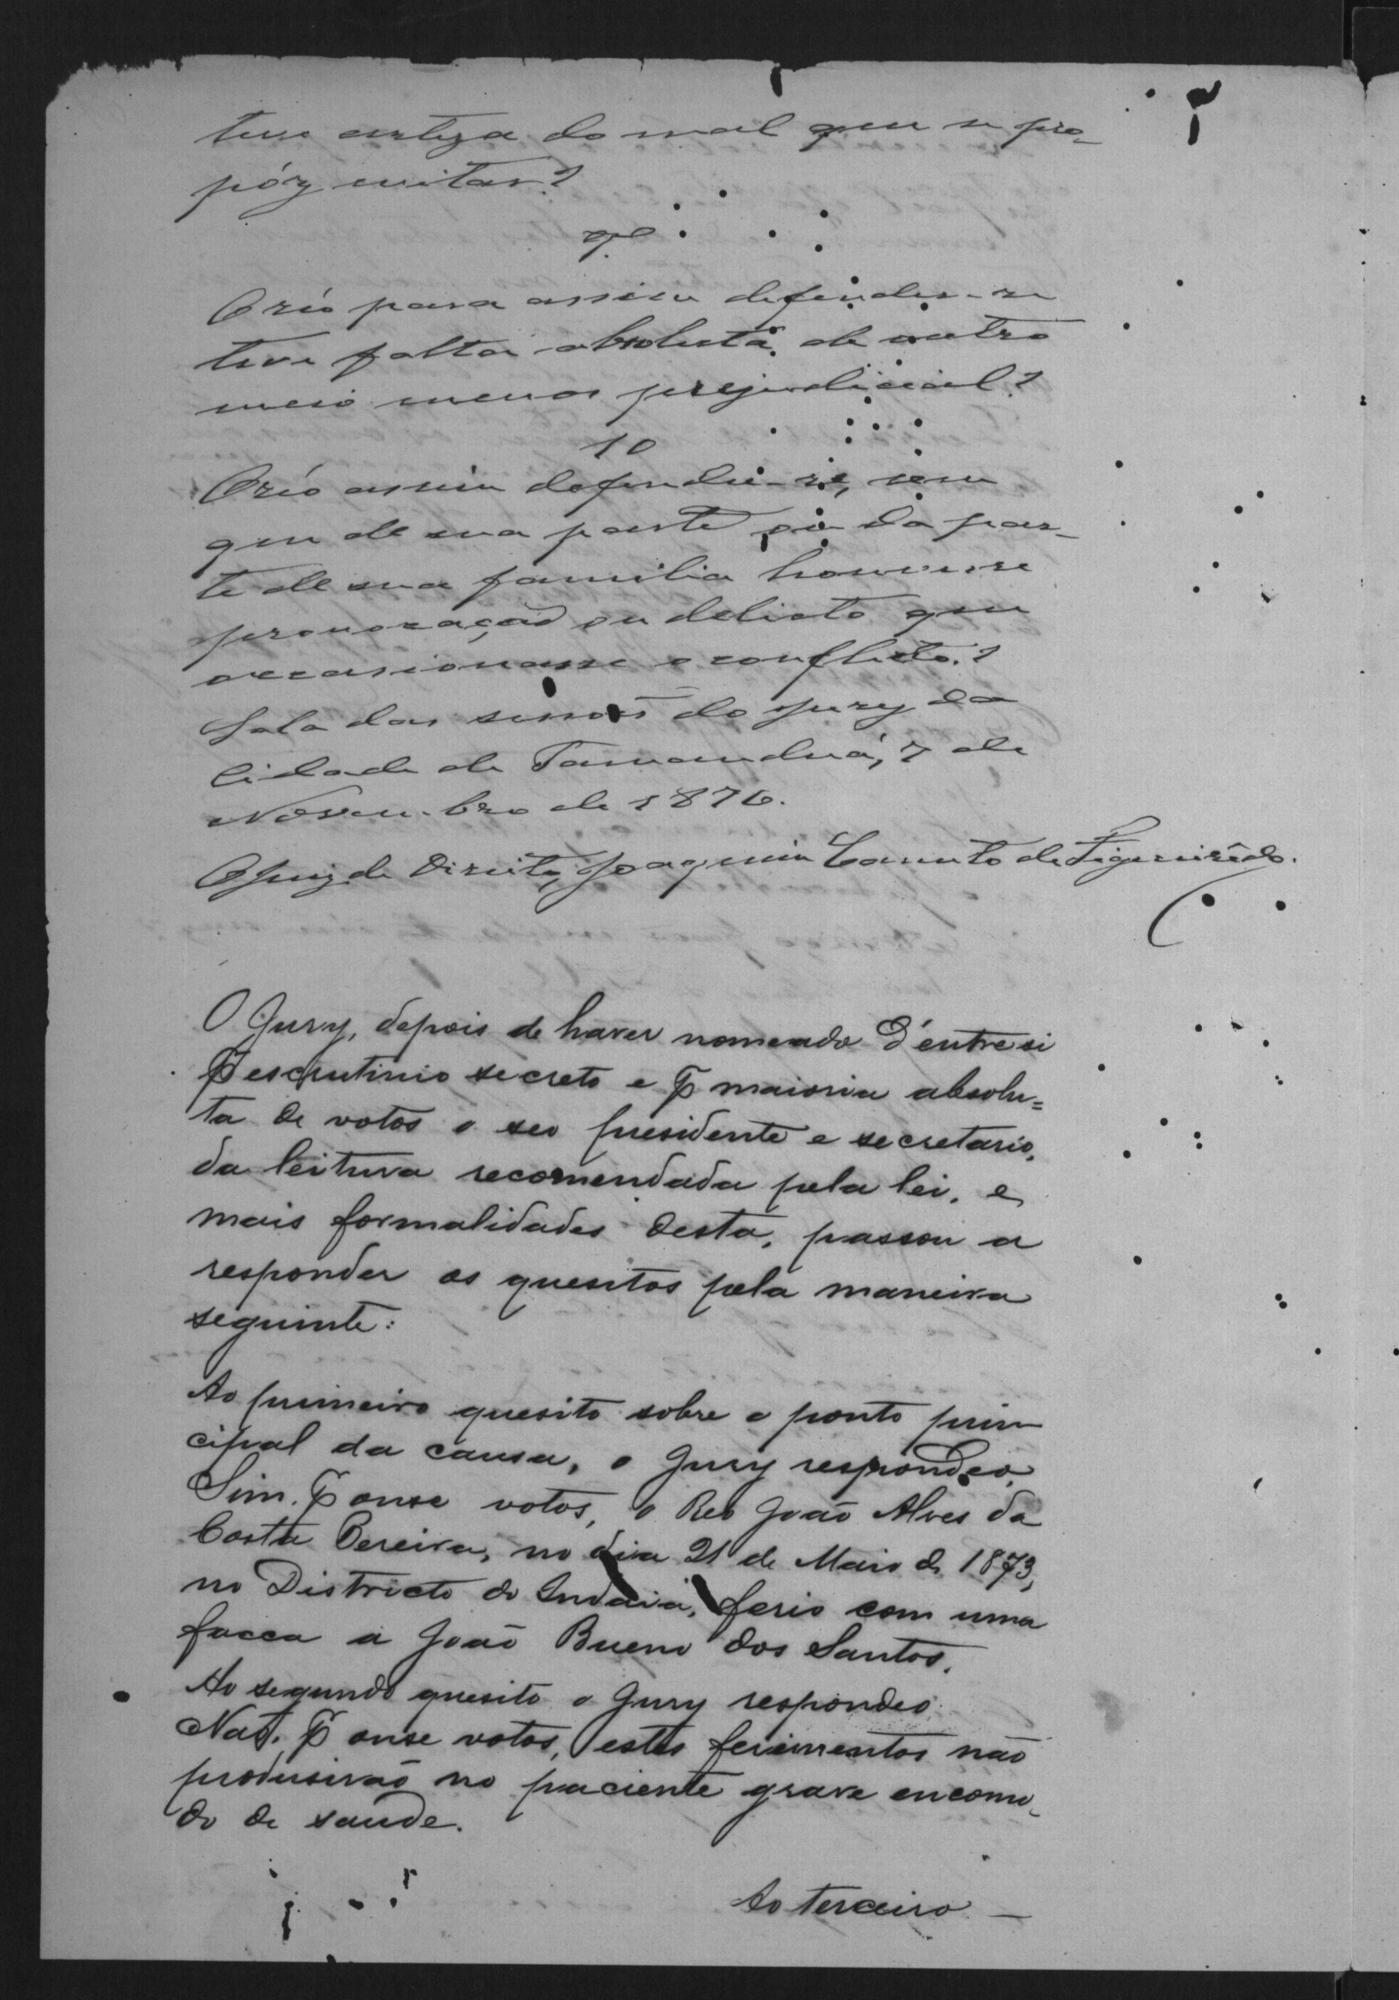 teve certeza do mal que se pro-
póz evitar?
9º
O réo para assim defender-se
teve falta absoluta de outro
meio menos prejudicial?
10
O réo assim defendeu-se, sem
que de sua parte ou da par-
te de sua familia houvesse
provocação ou delicto que
occasionasse o conflicto?
Sala das sessoẽs do Jury da
Cidade de Tamanduá, 7 de
Novembro de 1876.
O Juiz de Direito, Joaquim Canuto de Figueirêdo.
O Jury, depois de haver nomeado d'entre si
Ꝑ escrutinio secreto e Ꝑ maioria absolu=
ta de votos o seo presidente e secretario,
da leitura recomendada pela lei, e
mais formalidades desta, passou a
responder os quesitos pela maneira
seguinte:
Ao primeiro quesito sobre o ponto prin
cipal da causa, o Jury respondeo,
Sim. Ꝑ onse votos, o Reo João Alves da
Costa Pereira, no dia 21 de Maio de 1873,
no Districto do Indaiá, ferio com uma
facca a João Bueno dos Santos.
Ao segundo quesito o Jury respondeo
Naõ. Ꝑ onse votos, estes ferimentos não
produsiraõ no paciente grave encomo-
do de saude.
Ao terceiro —